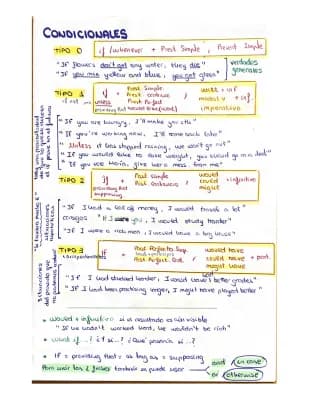 CONDICIONALES
TIPO 0
if / whenever + Prest Simple, Present Simple
"If flowers don't get any water, they die"
"If you mix yellow and blue, you get green"
verdades generales
TIPO 1
if not = unless
providing that
Prest Simple
Prest Continuous
Prest Perfect
will + inf
modal v + inf.
imperative
"If you are hungry, I'll make you
"If you're working now, I'll come back later"
"Unless it has stopped raining, we won't go out"
"If you would like to lose weight, you should go on a diet"
TIPO 2
if
providing that
supposing
+ Past simple
Past Continuous
would
could
might
+ infinitivo
"If I had a lot of money, I would travel a lot"
consejos "If I were you, I would study harder"
"If I were a rich man, I would have a big house"
TIPO 3
if + Past Perfecto Simp.
Past Perfect. Cont.
would have
could have
might have
+ part.
"If I had studied harder, I would have got better grades"
"If I had been practising longer, I might have played better"
would + infinitivo si el resultado es aún visible
"If we hadn't worked hard, we wouldn't be rich"
What if...? ¿Y si...? ¿Qué pasaría si...?
IF = providing that = as long as = supposing
Para unir las 2 frases también se puede usar
and in case
or otherwise